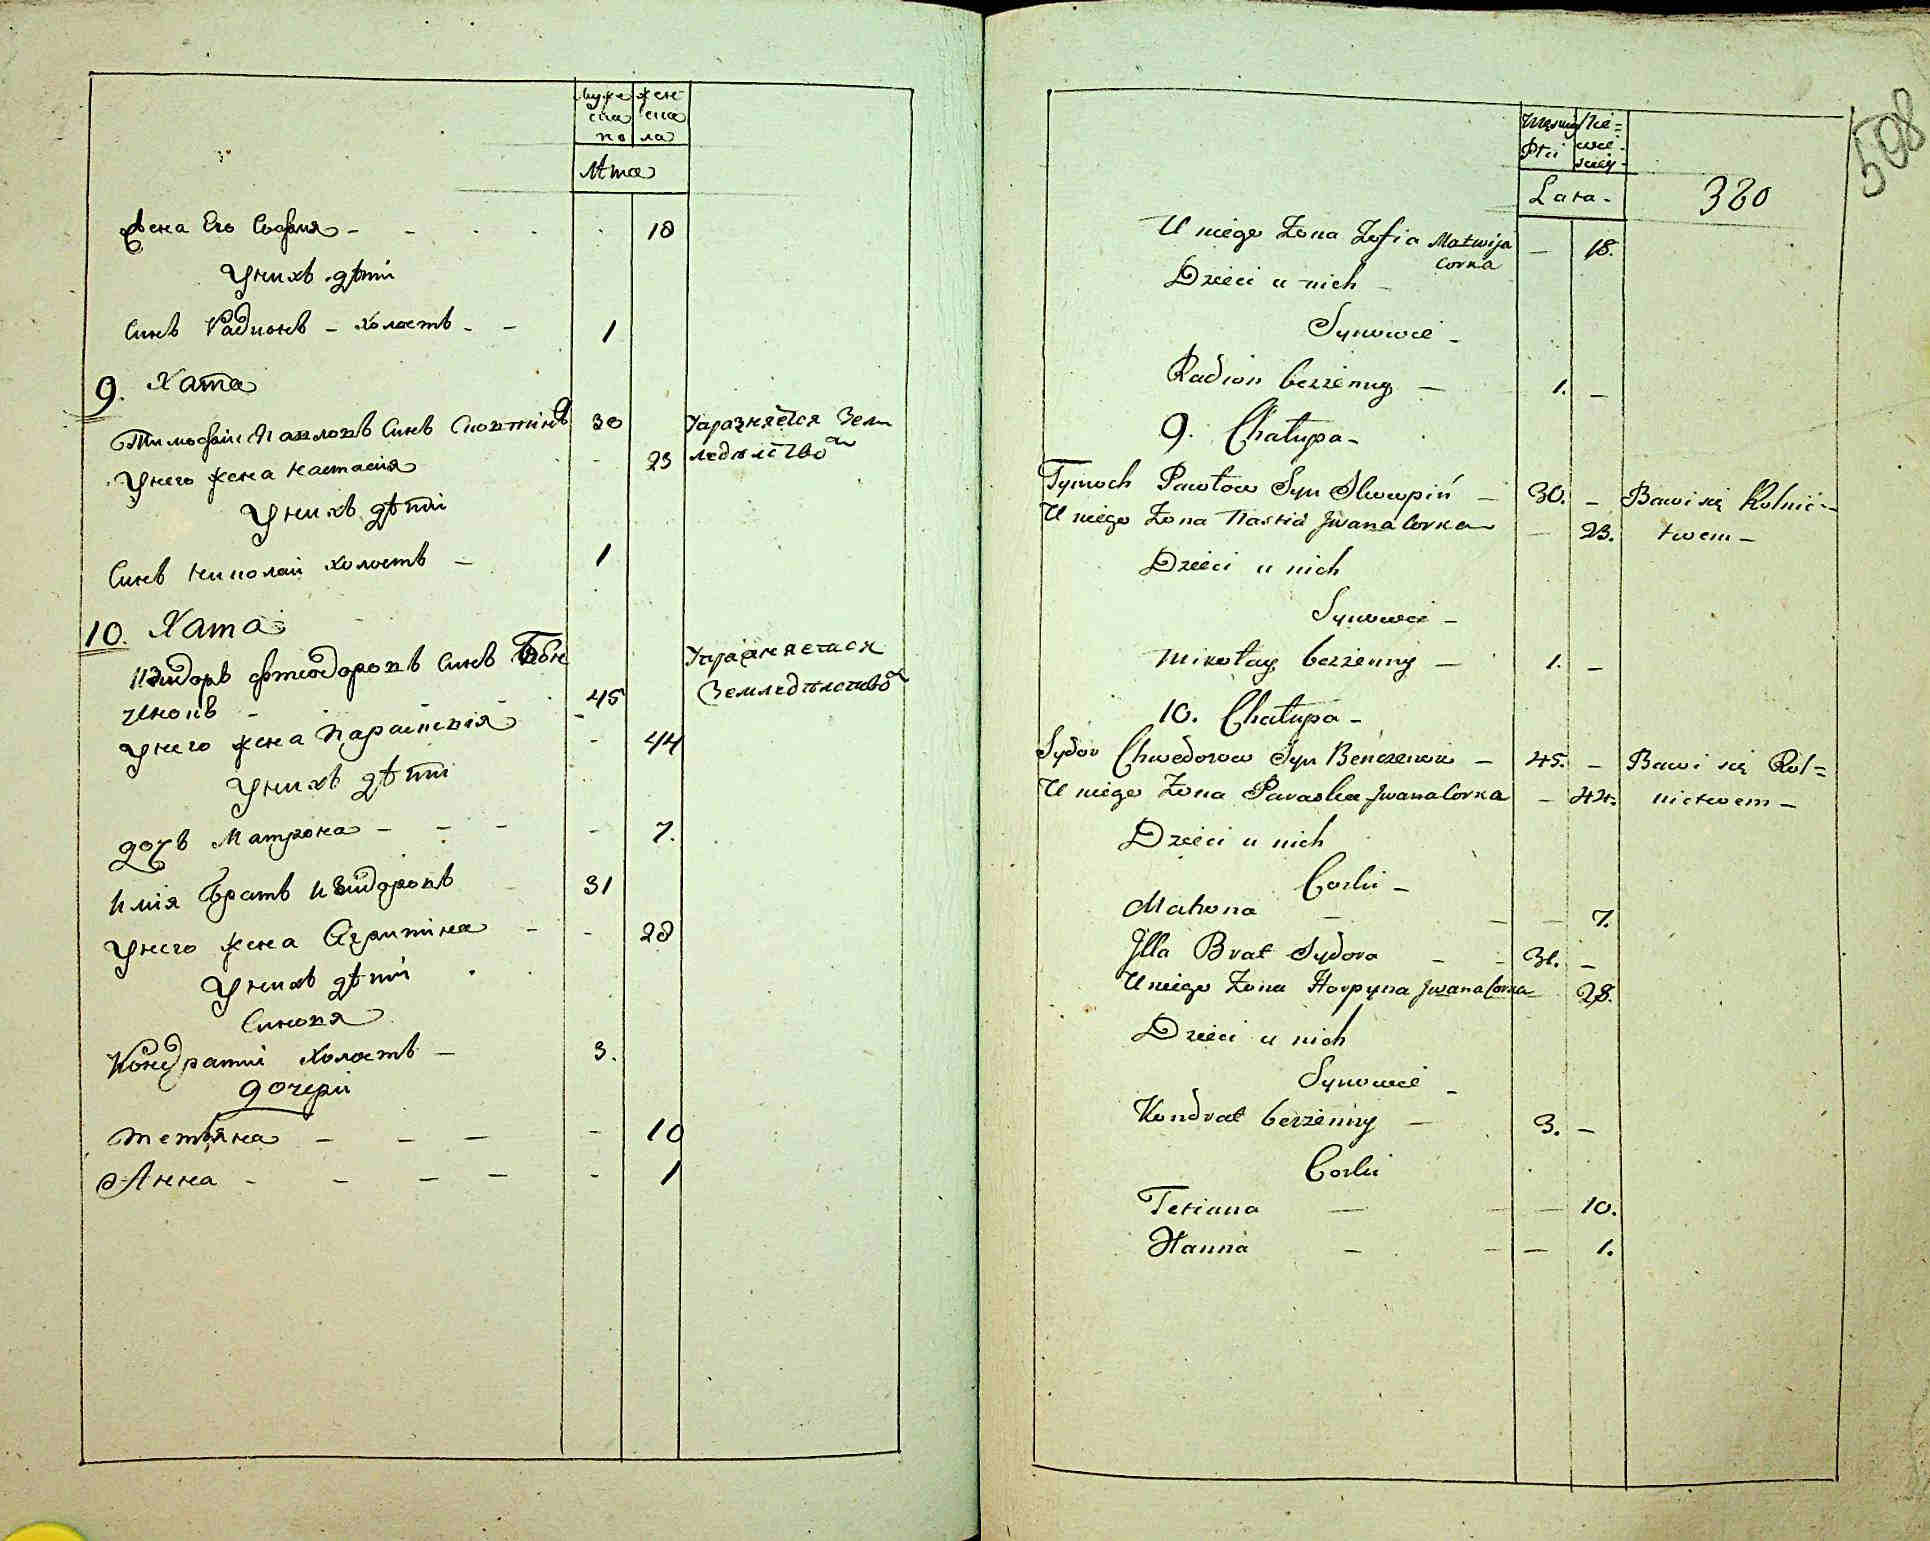 муже ска по
жен ска ла
Лѣта
Жена Его София - - 18
Унихъ дѣти
Синъ Радионъ - Холостъ - - 1
9. Хата
Тимофѣй Павловъ Синъ 30 Упражняется Зем
Унего жена Настасія - 23 ледѣлство
Унихъ дѣти
Синъ Николай холостъ - 1
10. Хата
Изидоръ Фтеодоровъ Синъ Бѣн Упражняется
чиновъ - 45 Земледѣлство
Унего жена Параскевія - 44
Унихъ дѣти
дочъ Матрона - - - - 7.
Илія Братъ Изидоровъ 31
Унего жена Агрипина - - 28
Унихъ дѣти
Синовя
Кондратій Холостъ - 3.
дочери
Тетьяна - - - - 10
Анна - - - - - 1
598
Męzkiey Płci
Nie= wie= sciey
Lata -
380
U niego Zona Zofia Matwija corka - 18.
Dzieci u nich -
Synowie -
Radion bezzenny - 1. -
9. Chałupa -
Tymoch Pawłow Syn Skwopiń - 30. - Bawi się Rolnic=
U niego Zona Nastia Jwana Corka - 23. twem -
Dzieci u nich
Synowie -
Mikołay bezzenny - 1. -
10. Chałupa -
Sydor Chwedorow Syn Benczenow - 45. - Bawi się Rol=
U niego Zona Paraska Jwana Corka - 44. nictwem -
Dzieci u nich
Corki -
Matrona - - - 7.
Jlla Brat Sydora - - 31. -
U niego Zona Horpyna Jwana Corka - 28.
Dzieci u nich
Synowie -
Kondrat bezzenny - 3. -
Corki
Tetiana - - - 10.
Hanna - - - 1.